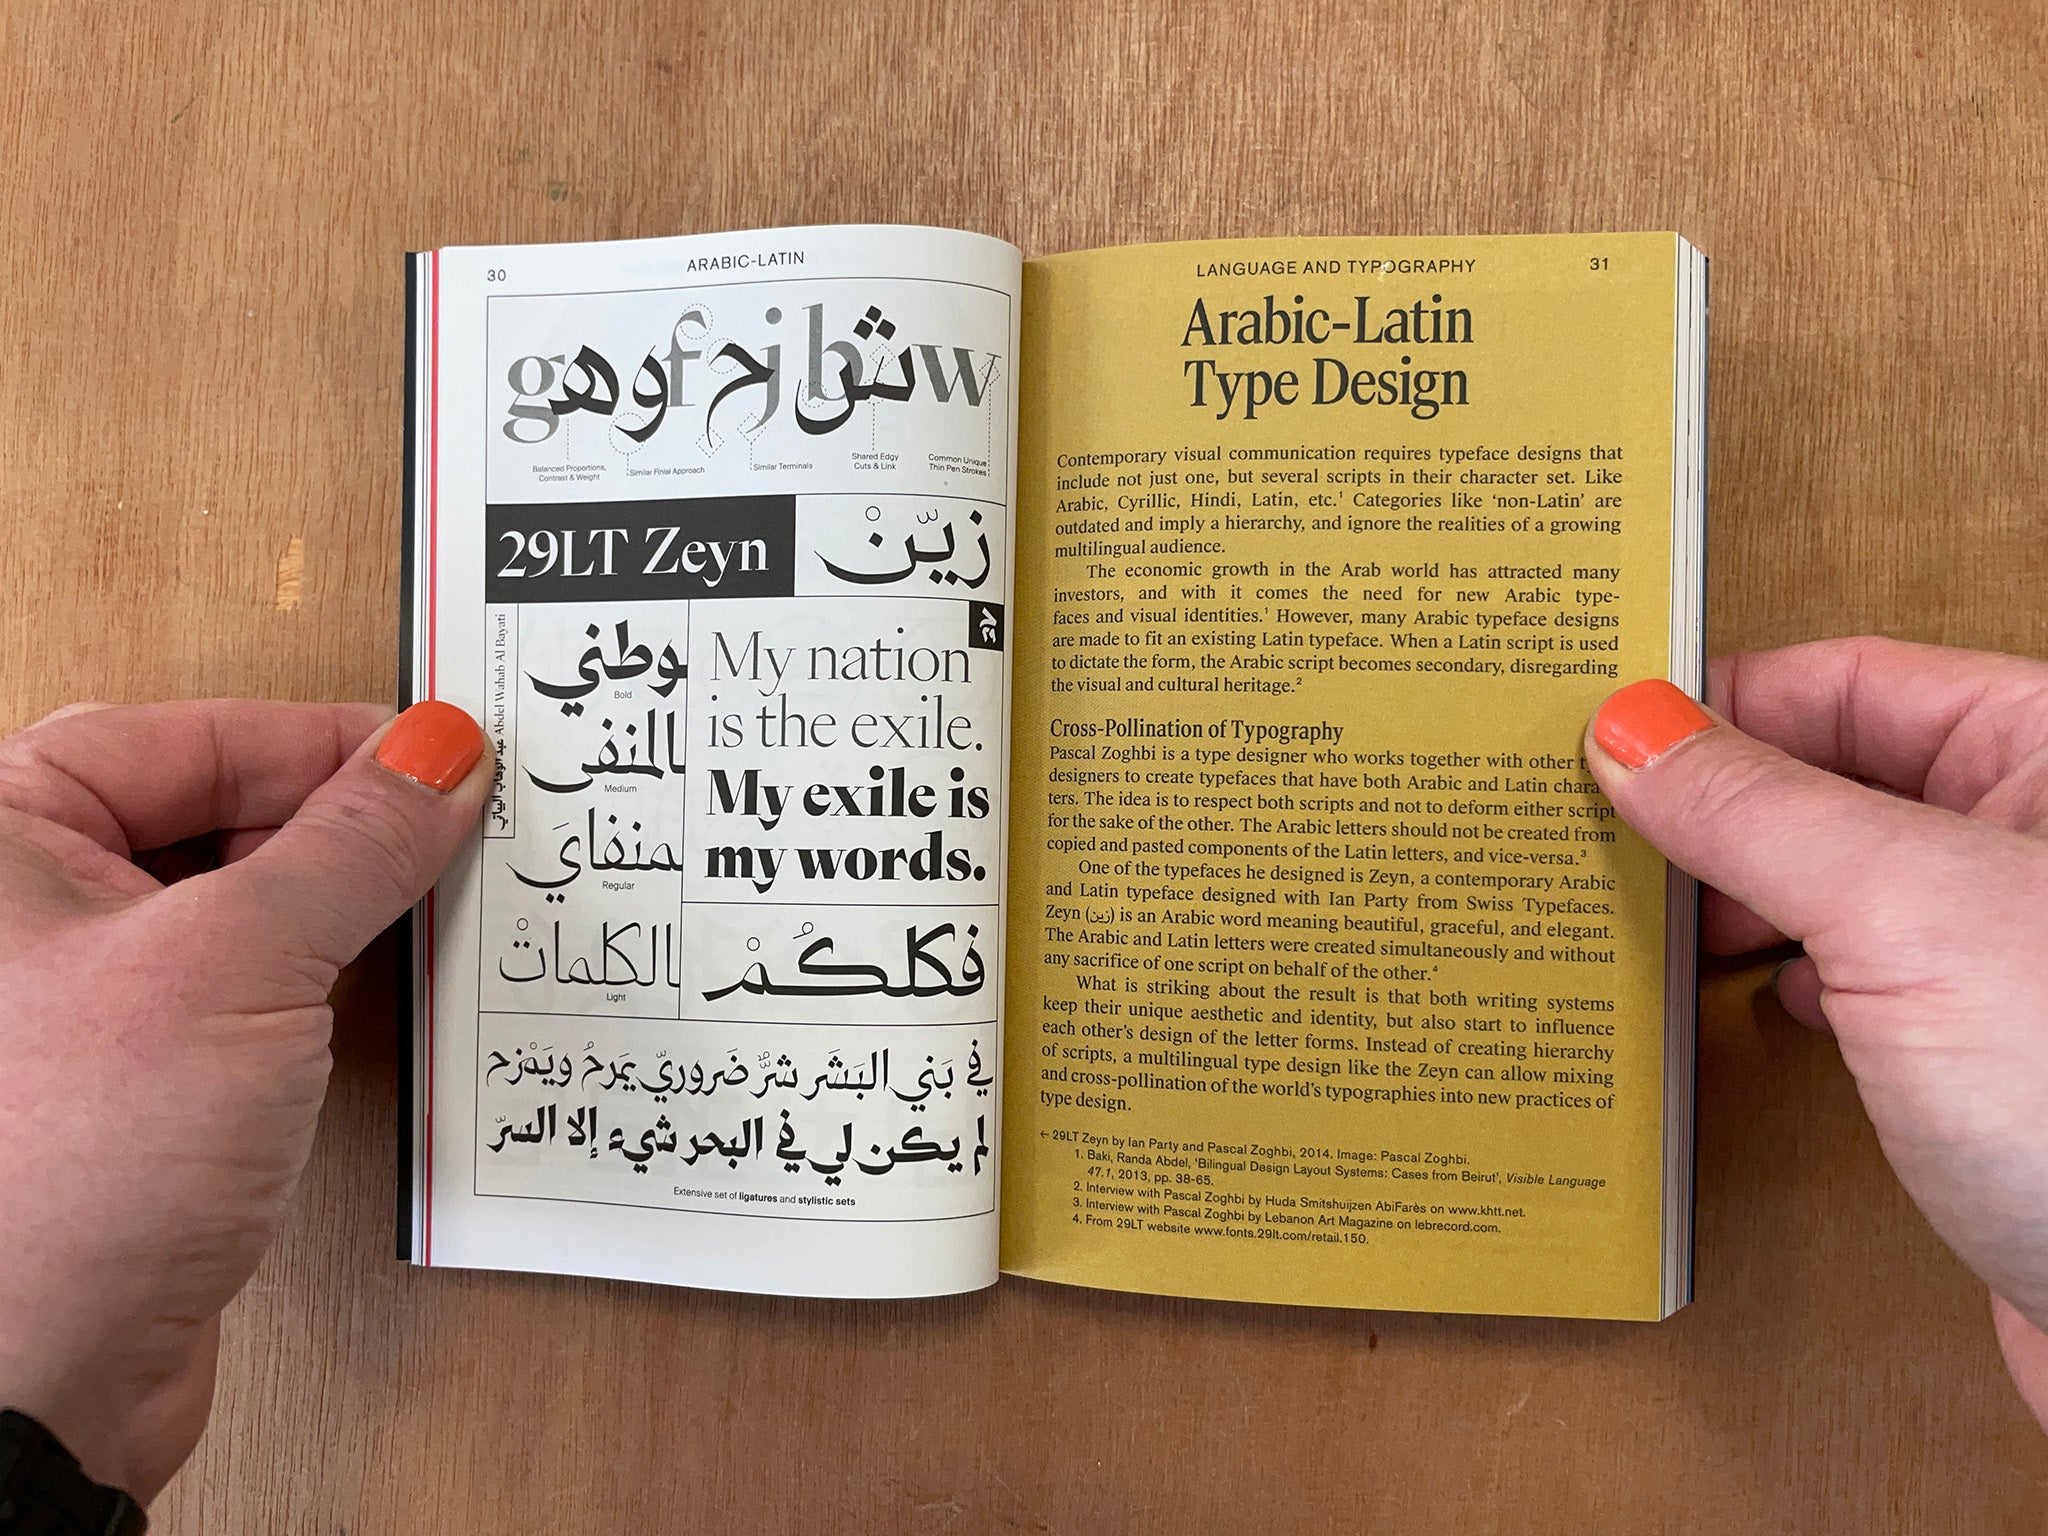 30
ARABIC-LATIN
g f j b w
هـ و ح ش
Balanced Proportions,
Contrast & Weight
Similar Finial Approach
Similar Terminals
Shared Edgy
Cuts & Link
Common Unique
Thin Pen Strokes
29LT Zeyn
زيّنْ
عبد الوهاب البياتي Abdel Wahab Al Bayati
وطني
Bold
المنفى
Medium
منفايَ
Regular
الكلماتْ
Light
29
My nation
is the exile.
My exile is
my words.
فكلكُمْ
في بَني البَشَر شرٌّ ضَروريّ يَمرحُ ويَمْزح
لم يكن لي في البحر شيء إلا السرّ
Extensive set of ligatures and stylistic sets
LANGUAGE AND TYPOGRAPHY
31
Arabic-Latin
Type Design
Contemporary visual communication requires typeface designs that
include not just one, but several scripts in their character set. Like
Arabic, Cyrillic, Hindi, Latin, etc.¹ Categories like ‘non-Latin’ are
outdated and imply a hierarchy, and ignore the realities of a growing
multilingual audience.
The economic growth in the Arab world has attracted many
investors, and with it comes the need for new Arabic type-
faces and visual identities.¹ However, many Arabic typeface designs
are made to fit an existing Latin typeface. When a Latin script is used
to dictate the form, the Arabic script becomes secondary, disregarding
the visual and cultural heritage.²
Cross-Pollination of Typography
Pascal Zoghbi is a type designer who works together with other
designers to create typefaces that have both Arabic and Latin charac
ters. The idea is to respect both scripts and not to deform either script
for the sake of the other. The Arabic letters should not be created from
copied and pasted components of the Latin letters, and vice-versa.³
One of the typefaces he designed is Zeyn, a contemporary Arabic
and Latin typeface designed with Ian Party from Swiss Typefaces.
Zeyn (زين) is an Arabic word meaning beautiful, graceful, and elegant.
The Arabic and Latin letters were created simultaneously and without
any sacrifice of one script on behalf of the other.⁴
What is striking about the result is that both writing systems
keep their unique aesthetic and identity, but also start to influence
each other’s design of the letter forms. Instead of creating hierarchy
of scripts, a multilingual type design like the Zeyn can allow mixing
and cross-pollination of the world’s typographies into new practices of
type design.
← 29LT Zeyn by Ian Party and Pascal Zoghbi, 2014. Image: Pascal Zoghbi.
1. Baki, Randa Abdel, ‘Bilingual Design Layout Systems: Cases from Beirut’, Visible Language
47.1, 2013, pp. 38-65.
2. Interview with Pascal Zoghbi by Huda Smitshuijzen AbiFarès on www.khtt.net.
3. Interview with Pascal Zoghbi by Lebanon Art Magazine on lebrecord.com.
4. From 29LT website www.fonts.29lt.com/retail.150.